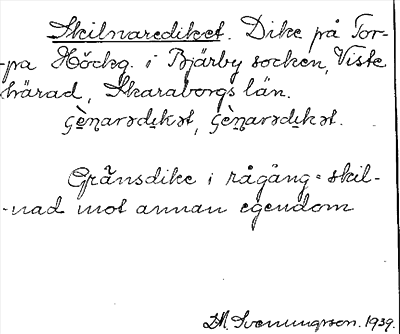 Skilnarediket. Dike på Tor-
-pa Höckg. i Bjärby socken, Viste
härad, Skaraborgs län.
Gränsdike i rågång = skil-
-nad mot annan egendom
Svenungsson. 1939.